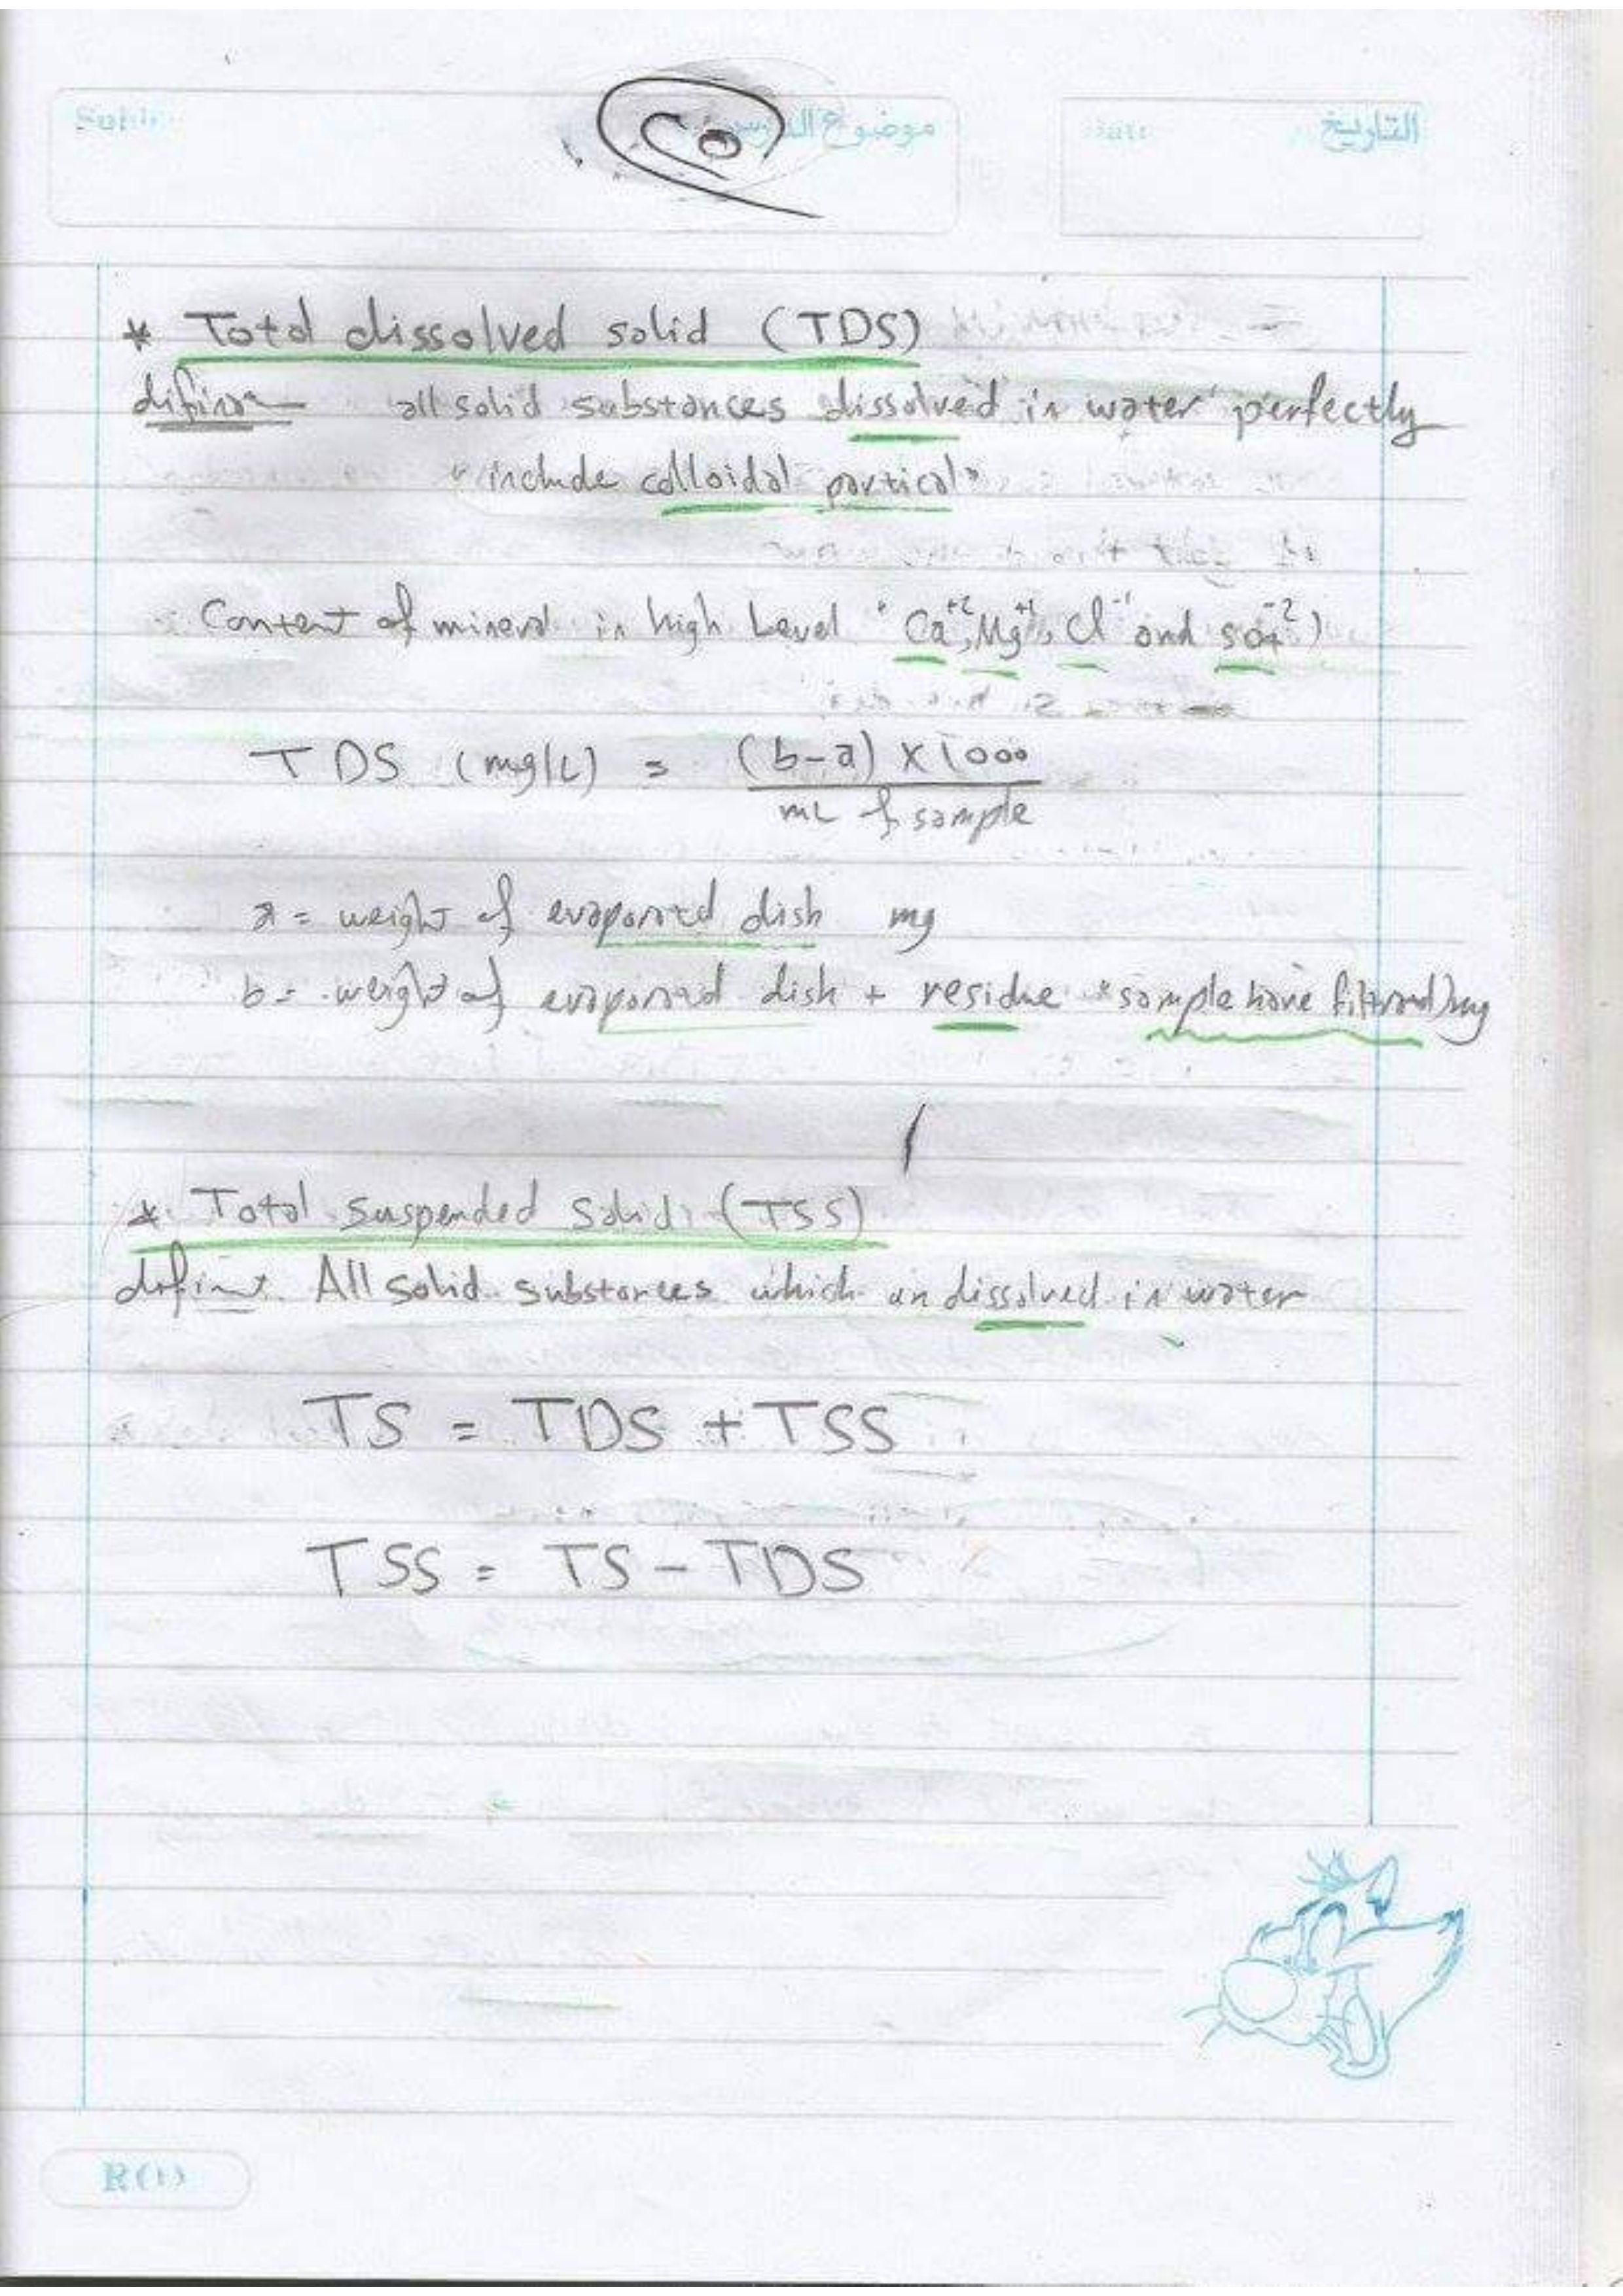 موضوع الدرس
التاريخ
* Total dissolved solid (TDS)
all solid substances dissolved in water perfectly
"include colloidal partical"
Content of mineral in high Level "Ca⁺², Mg⁺², Cl⁻¹ and so₄⁻²)
TDS (mg/L) = (b-a) x 1000
mL of sample
a = weight of evaporated dish mg
b = weight of evaporated dish + residue "sample have filtrated) mg
* Total suspended Solid (TSS)
All solid substances which un dissolved in water
TS = TDS + TSS
TSS = TS - TDS
R(1)